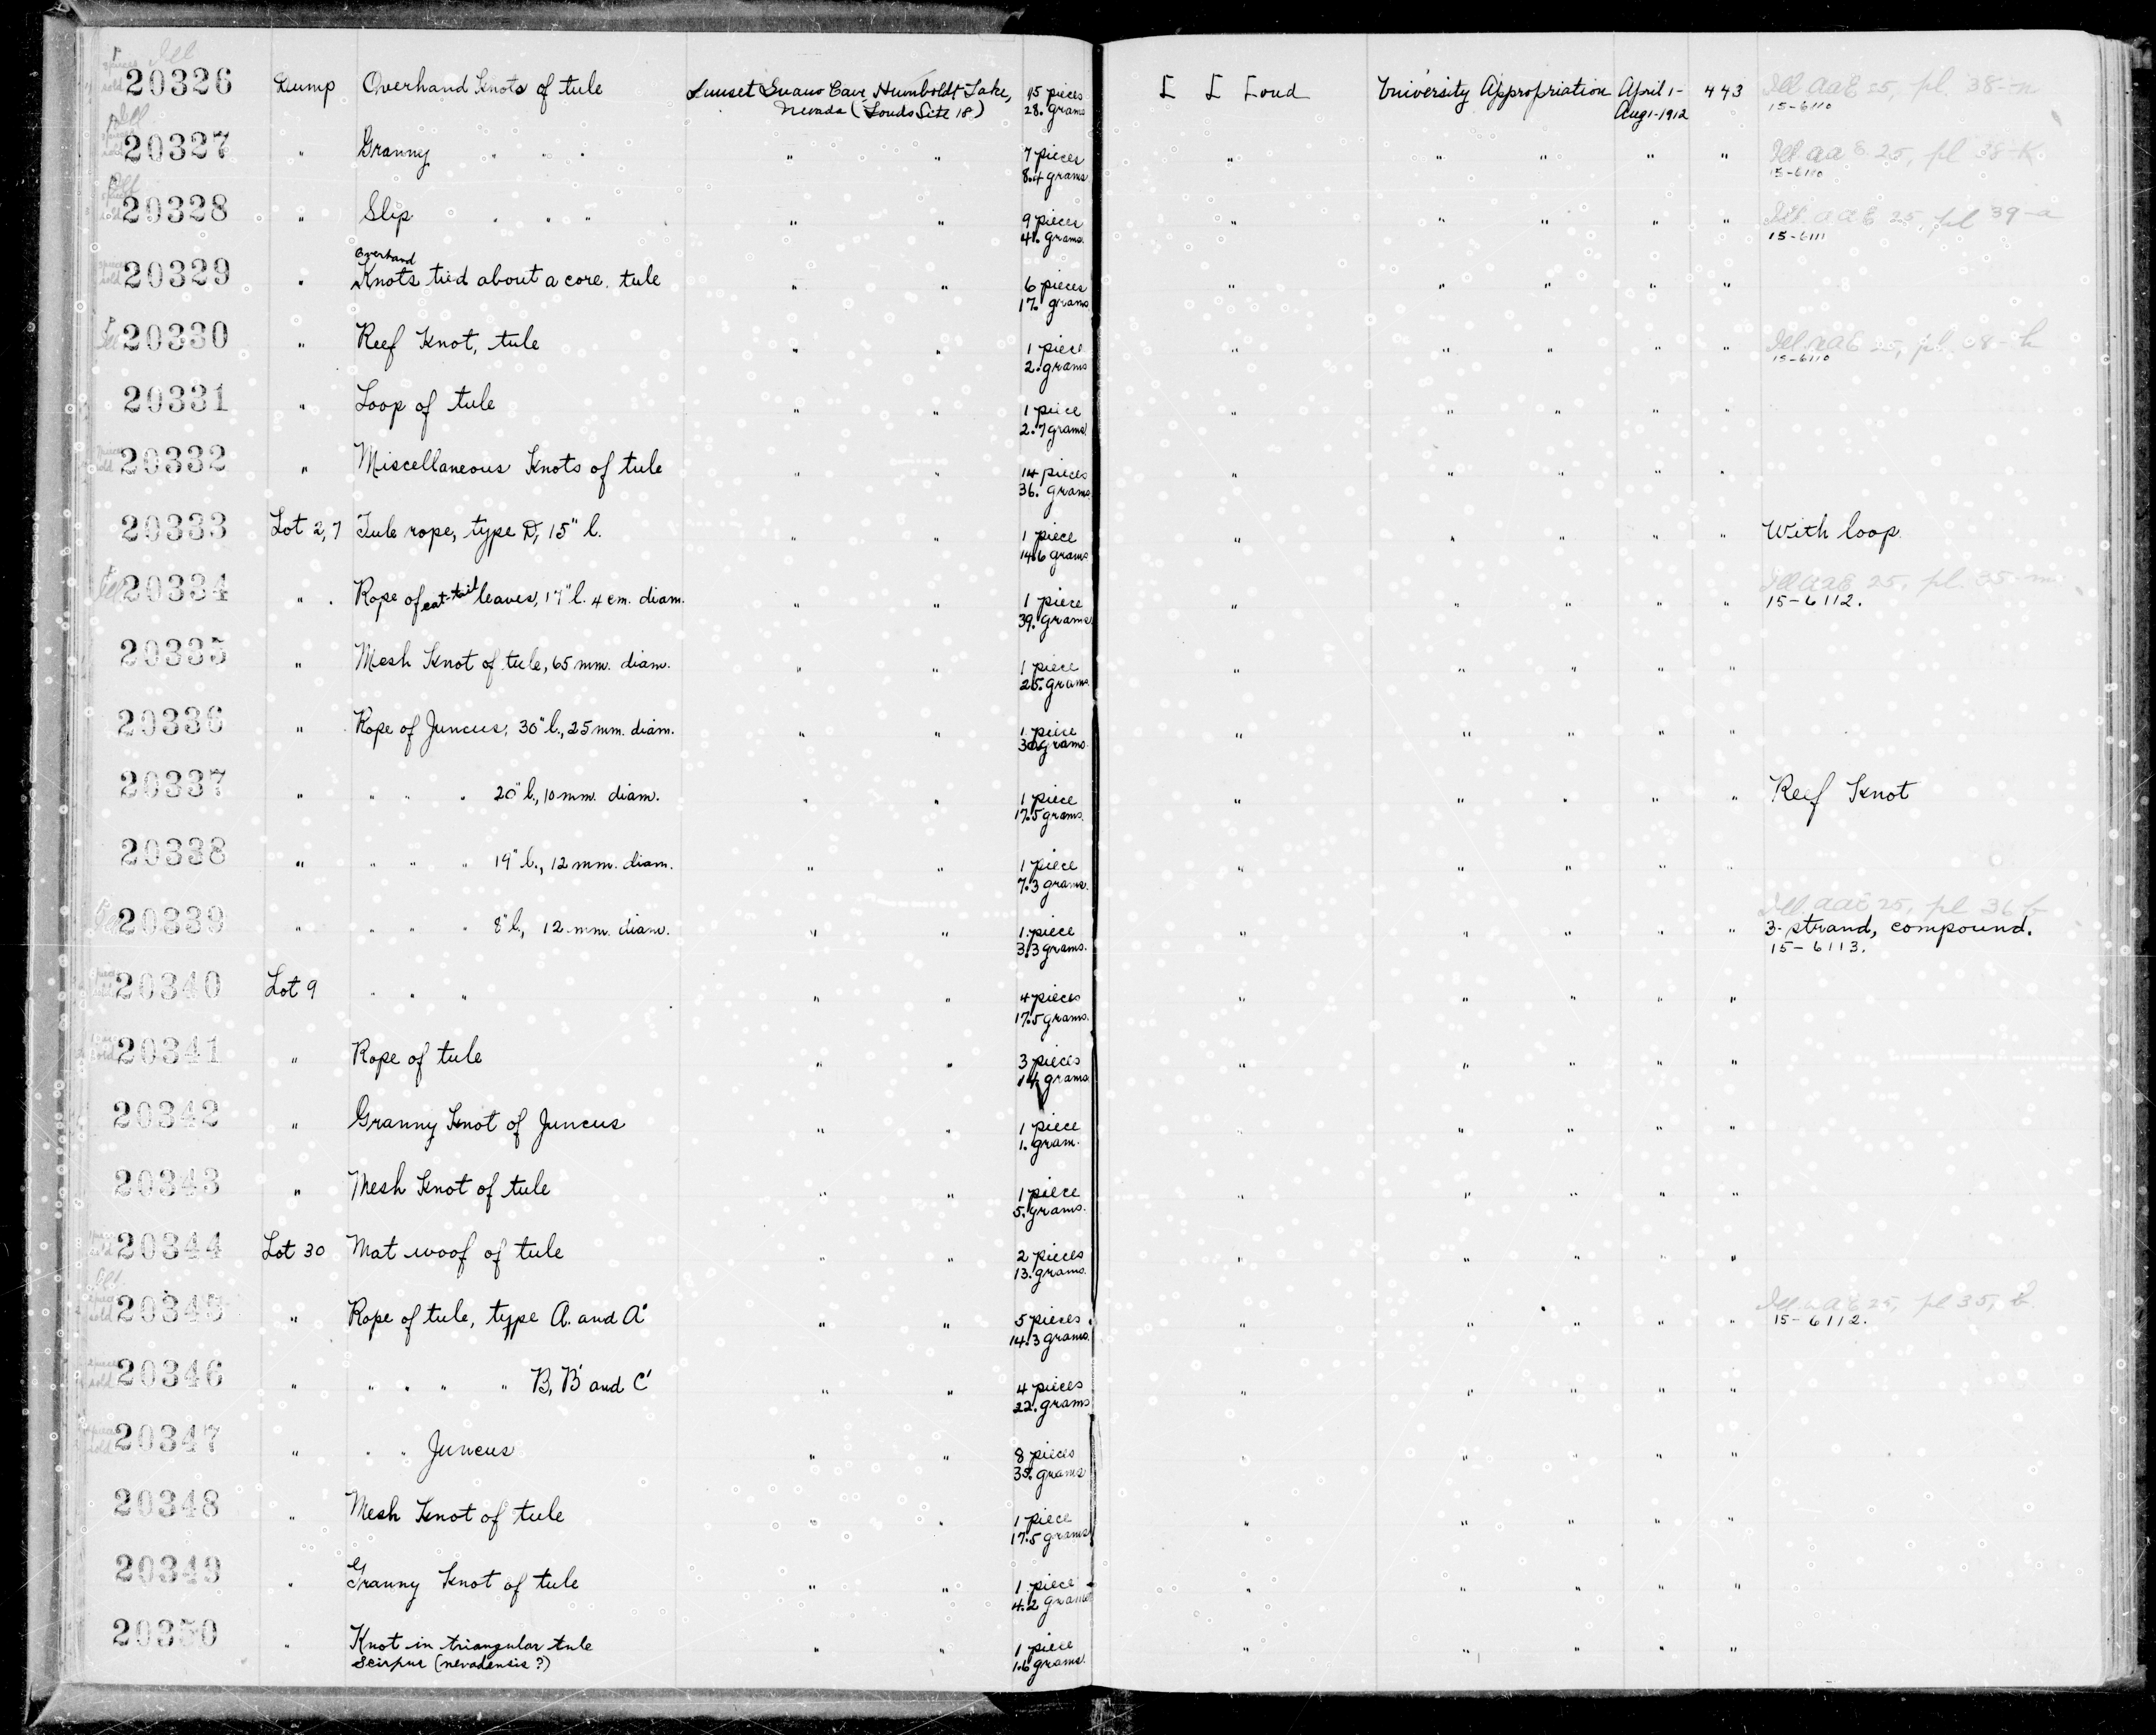 20326 Dump Overhand Knots of tule Sunset Guano Cave, Humboldt Lake, 15 pieces L L Loud University Appropriation April 1- 443 Ill aaE 25, pl. 38-n
Nevada (Louds Site 18) 28. grams Aug 1-1912 15-6110
20327 " Granny " " " " " 7 pieces " " " " " Ill aaE 25, pl 38-k
8.4 grams 15-6110
20328 " Slip " " " " " 9 pieces " " " " " Ill. aaE 25, pl 39-a
41. grams. 15-6111
Overhand
20329 " Knots tied about a core. tule " " 6 pieces " " " " "
17. grams
20330 " Reef Knot, tule " " 1 piece " " " " " Ill. aaE 25, pl. 38-h
2. grams 15-6110
20331 " Loop of tule " " 1 piece " " " " "
2.7 grams
20332 " Miscellaneous Knots of tule " " 14 pieces " " " " "
36. grams
20333 Lot 2,7 Tule rope, type D, 15" l. " " 1 piece " " " " " With loop
14.6 grams
20334 " " Rope of cat-tail leaves, 17" l. 4 cm. diam. " " 1 piece " " " " " Ill aaE 25, pl. 35-m
39. grams 15-6112.
20335 " Mesh Knot of tule, 65 mm. diam. " " 1 piece " " " " "
25. grams
20336 " Rope of Juncus, 30" l., 25 mm. diam. " " 1 piece " " " " "
grams
20337 " " " " 20" l., 10 mm. diam. " " 1 piece " " " " " Reef Knot
17.5 grams.
20338 " " " " 19" l., 12 mm. diam. " " 1 piece " " " " "
7.3 grams.
20339 " " " " 8" l., 12 mm. diam. " " 1 piece " " " " " Ill. aaE 25, pl 36 b
3.3 grams. 3-strand, compound.
15-6113.
20340 Lot 9 " " " " " 4 pieces " " " " "
17.5 grams.
20341 " Rope of tule " " 3 pieces " " " " "
14 grams
20342 " Granny Knot of Juncus " " 1 piece " " " " "
1. gram.
20343 " Mesh Knot of tule " " 1 piece " " " " "
5. grams.
20344 Lot 30 Mat woof of tule " " 2 pieces " " " " "
13. grams.
20345 " Rope of tule, type A. and A' " " 5 pieces " " " " " Ill. aaE 25, pl 35, b.
14.3 grams. 15-6112.
20346 " " " " " B, B' and C' " " 4 pieces " " " " "
22. grams
20347 " " " Juncus " " 8 pieces " " " " "
35. grams
20348 " Mesh Knot of tule " " 1 piece " " " " "
17.5 grams
20349 " Granny Knot of tule " " 1 piece " " " " "
4.2 grams
20350 " Knot in triangular tule " " 1 piece " " " " "
Scirpus (nevadensis ?) 1.6 grams.